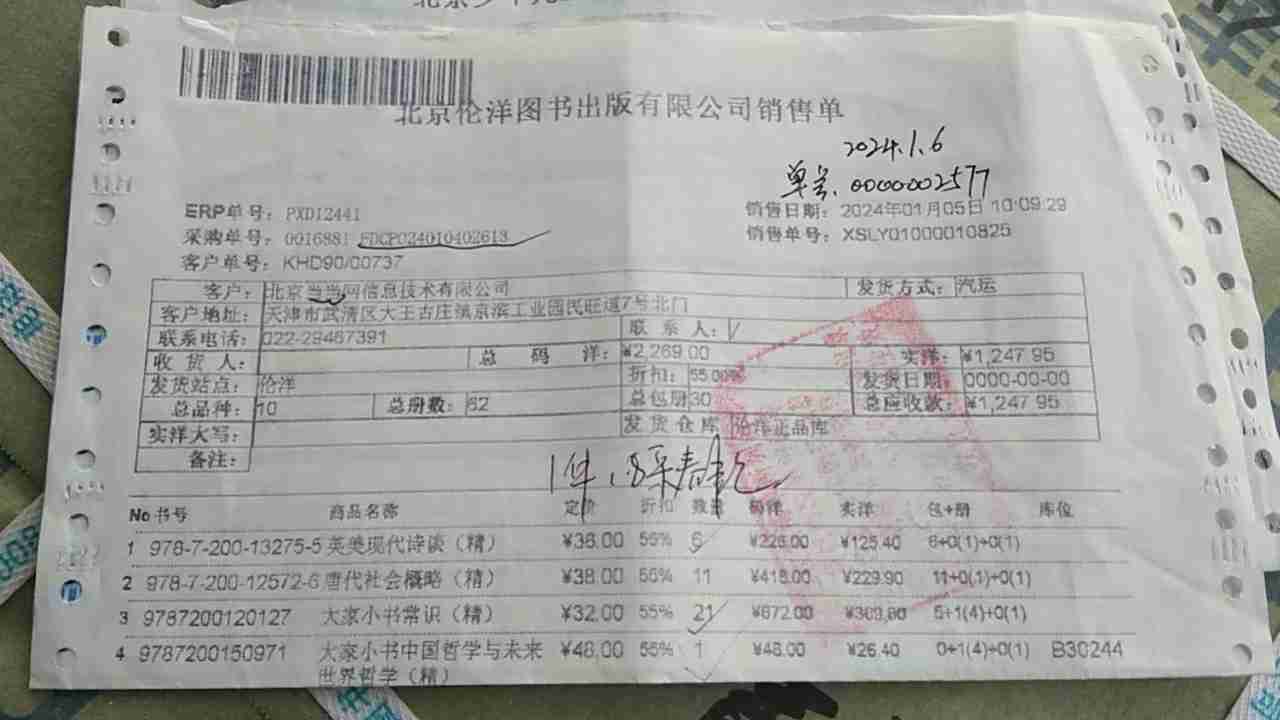 北京伦洋图书出版有限公司销售单
2024.1.6
单号:0000002577
ERP单号: PXD12441
销售日期: 2024年01月05日 10:09:29
采购单号: 0016881 FDCP024010402613
销售单号: XSLY01000010825
客户单号: KHD90/00737
客户: 北京当当网信息技术有限公司 发货方式: 汽运
客户地址: 天津市武清区大王古庄镇京滨工业园民旺道7号北门
联系电话: 022-29467391 联系人:
收货人: 总码洋: ¥2,269.00 实洋: ¥1,247.95
发货站点: 伦洋 折扣: 55.00% 发货日期: 0000-00-00
总品种: 10 总册数: 62 总包册 30 总应收款: ¥1,247.95
实洋大写: 发货仓库 伦洋正品库
备注:
1件
No 书号 商品名称 定价 折扣 数量 码洋 实洋 包+册 库位
1 978-7-200-13275-5 英美现代诗谈（精） ¥38.00 55% 6 ¥228.00 ¥125.40 6+0(1)+0(1)
2 978-7-200-12572-6 唐代社会概略（精） ¥38.00 55% 11 ¥418.00 ¥229.90 11+0(1)+0(1)
3 9787200120127 大家小书常识（精） ¥32.00 55% 21 ¥672.00 ¥369.60 5+1(4)+0(1)
4 9787200150971 大家小书中国哲学与未来 ¥48.00 55% 1 ¥48.00 ¥26.40 0+1(4)+0(1) B30244
世界哲学（精）